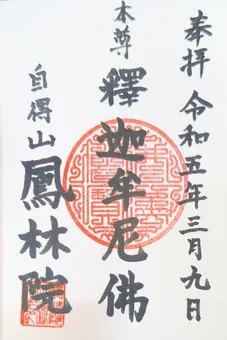 奉拝 令和五年三月九日
本尊
釋迦牟尼佛
自得山
鳳林院